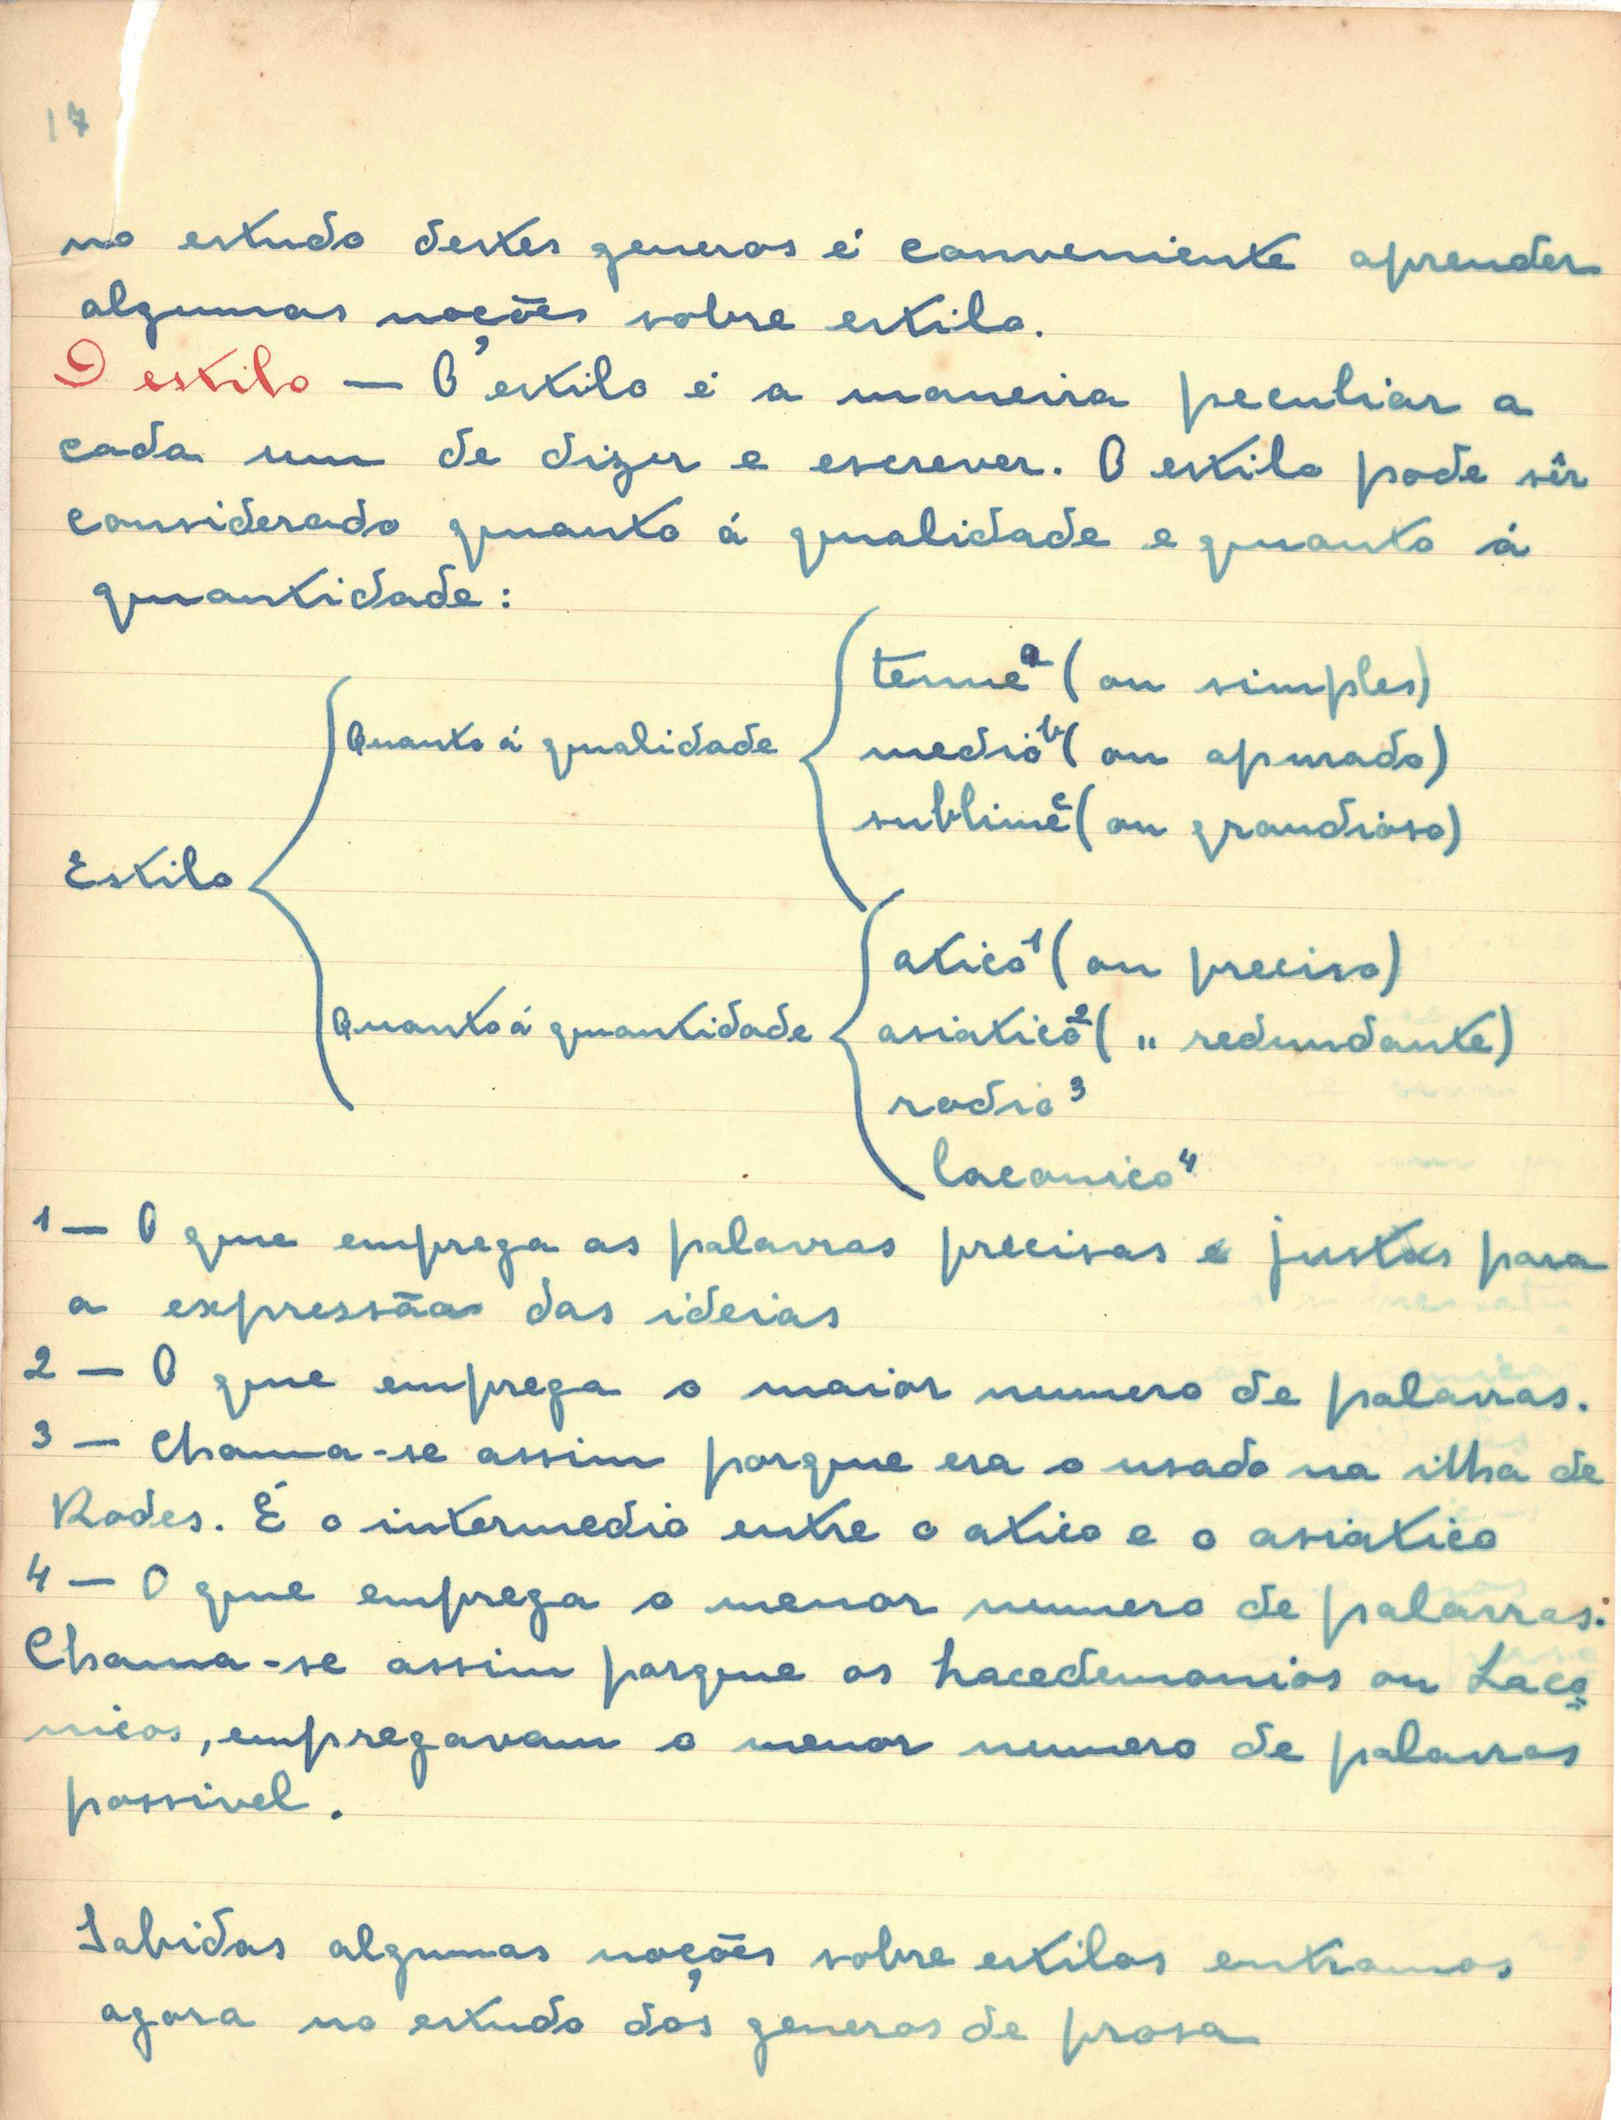 17
no estudo destes generos é conveniente aprender
algumas noções sobre estilo.
O estilo — O estilo é a maneira peculiar a
cada um de dizer e escrever. O estilo pode sêr
considerado quanto á qualidade e quanto á
quantidade:
tenue a (ou simples)
Quanto á qualidade
medio b (ou apurado)
sublime c (ou grandioso)
Estilo
atico 1 (ou preciso)
Quanto á quantidade
asiatico 2 ( " redundante)
rodio 3
laconico 4
1 — O que emprega as palavras precisas e justas para
a expressão das ideias
2 — O que emprega o maior numero de palavras.
3 — Chama-se assim porque era o usado na ilha de
Rodes. É o intermedio entre o atico e o asiatico
4 — O que emprega o menor numero de palavras.
Chama-se assim porque os Lacedemonios ou Laco
nicos, empregavam o menor numero de palavras
possivel.
Sabidas algumas noções sobre estilos entramos
agora no estudo dos generos de prosa